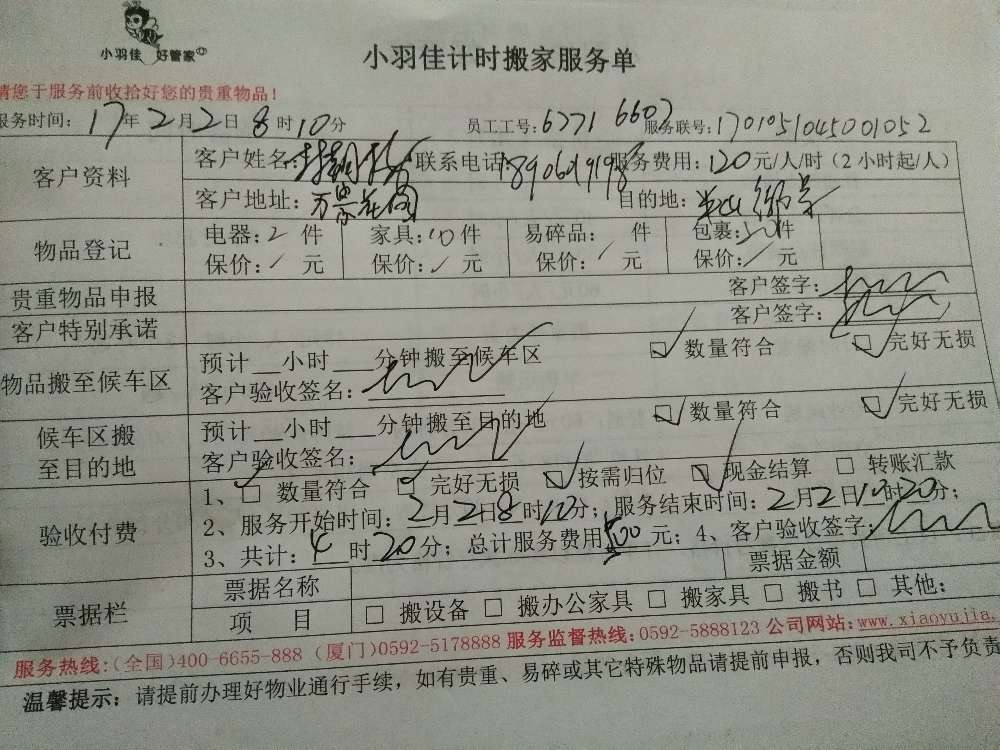 小羽佳 好管家
小羽佳计时搬家服务单
请您于服务前收拾好您的贵重物品！
服务时间：17年2月2日8时10分 员工工号：6771 6607 服务联号：1701051045001052
客户资料 客户姓名： 联系电话 服务费用：120元/人/时（2小时起/人）
客户地址：万景花园 目的地：
物品登记 电器：2件 家具：10件 易碎品： 件 包裹：50件
保价：/元 保价：/元 保价：/元 保价：/元
贵重物品申报 客户签字：
客户特别承诺 客户签字：
物品搬至候车区 预计__小时___分钟搬至候车区 ☑ 数量符合 ☑ 完好无损
客户验收签名：
候车区搬至目的地 预计__小时___分钟搬至目的地 ☑ 数量符合 ☑ 完好无损
客户验收签名：
验收付费 1、☑ 数量符合 ☑ 完好无损 ☑ 按需归位 ☑ 现金结算 □ 转账汇款
2、服务开始时间：2月2日8时10分；服务结束时间：2月2日 时20分；
3、共计： 时20分；总计服务费用 元；4、客户验收签字：
票据栏 票据名称 票据金额
项 目 □ 搬设备 □ 搬办公家具 □ 搬家具 □ 搬书 □ 其他：
服务热线：（全国）400-6655-888（厦门）0592-5178888 服务监督热线：0592-5888123 公司网站：www.xiaoyujia.
温馨提示：请提前办理好物业通行手续，如有贵重、易碎或其它特殊物品请提前申报，否则我司不予负责